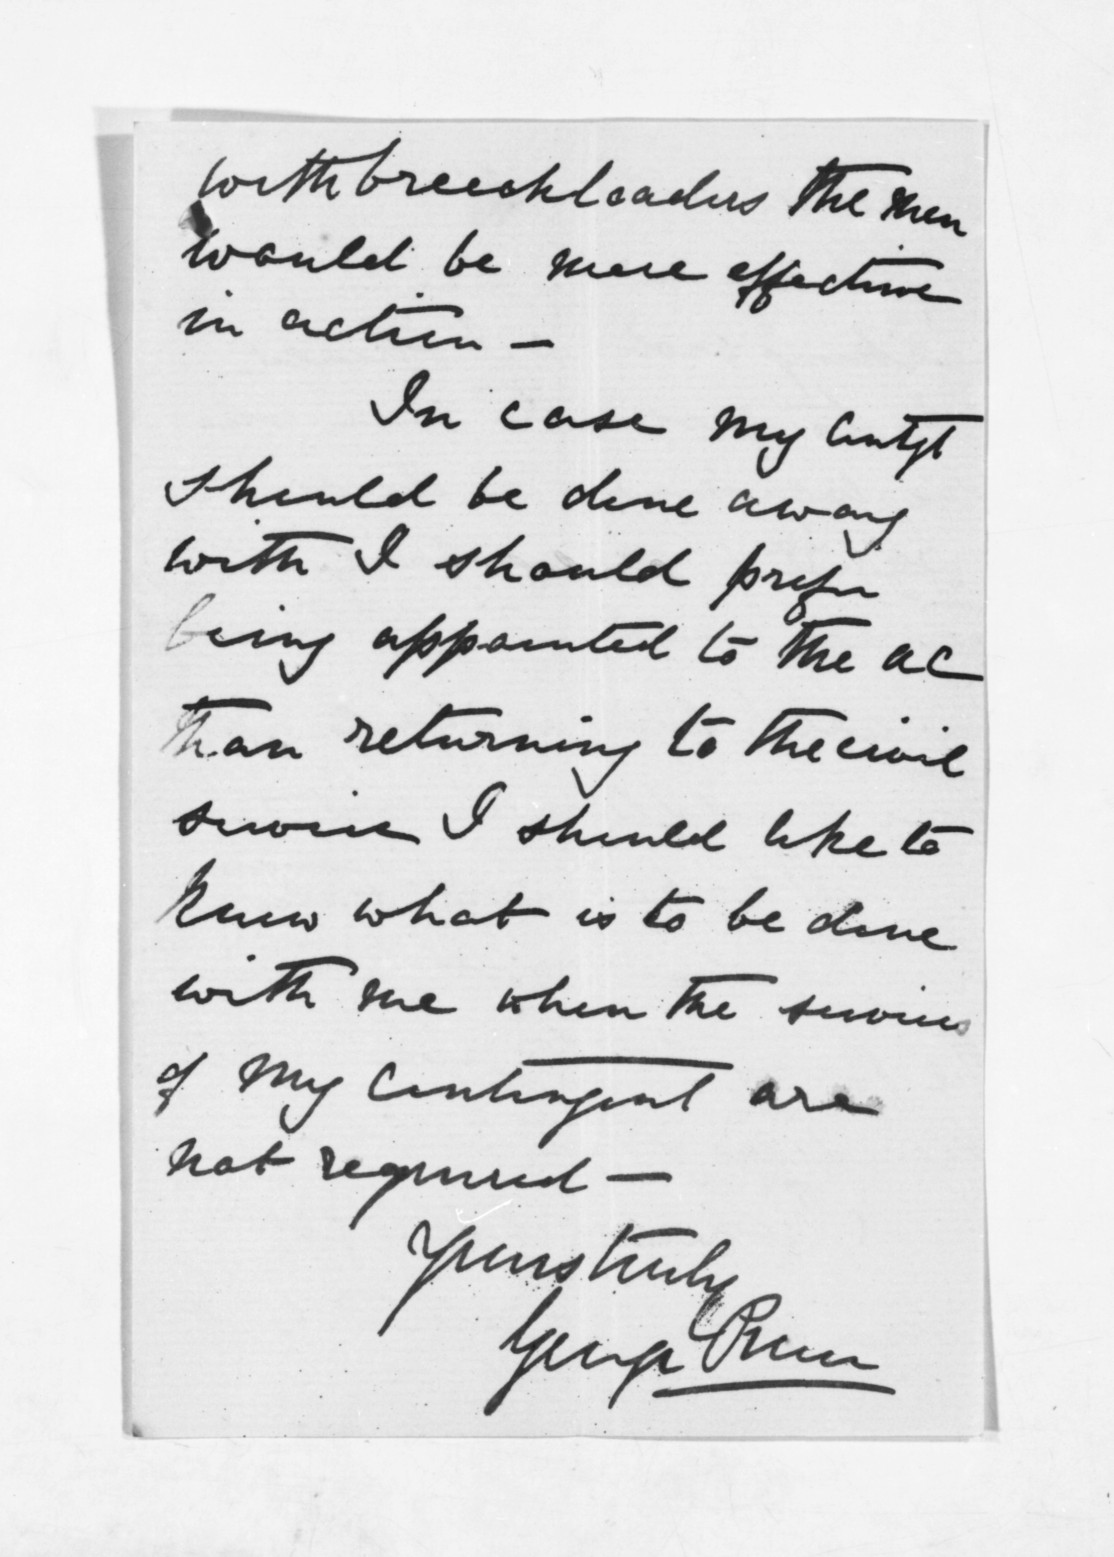 with breechloaders the men
would be more effective
in action —
In case my Contgt
should be done away
with I should prefer
being appointed to the AC
than returning to the civil
service I should like to
know what is to be done
with me when the services
of my Contingent are
not required —
Yours truly
George Preece